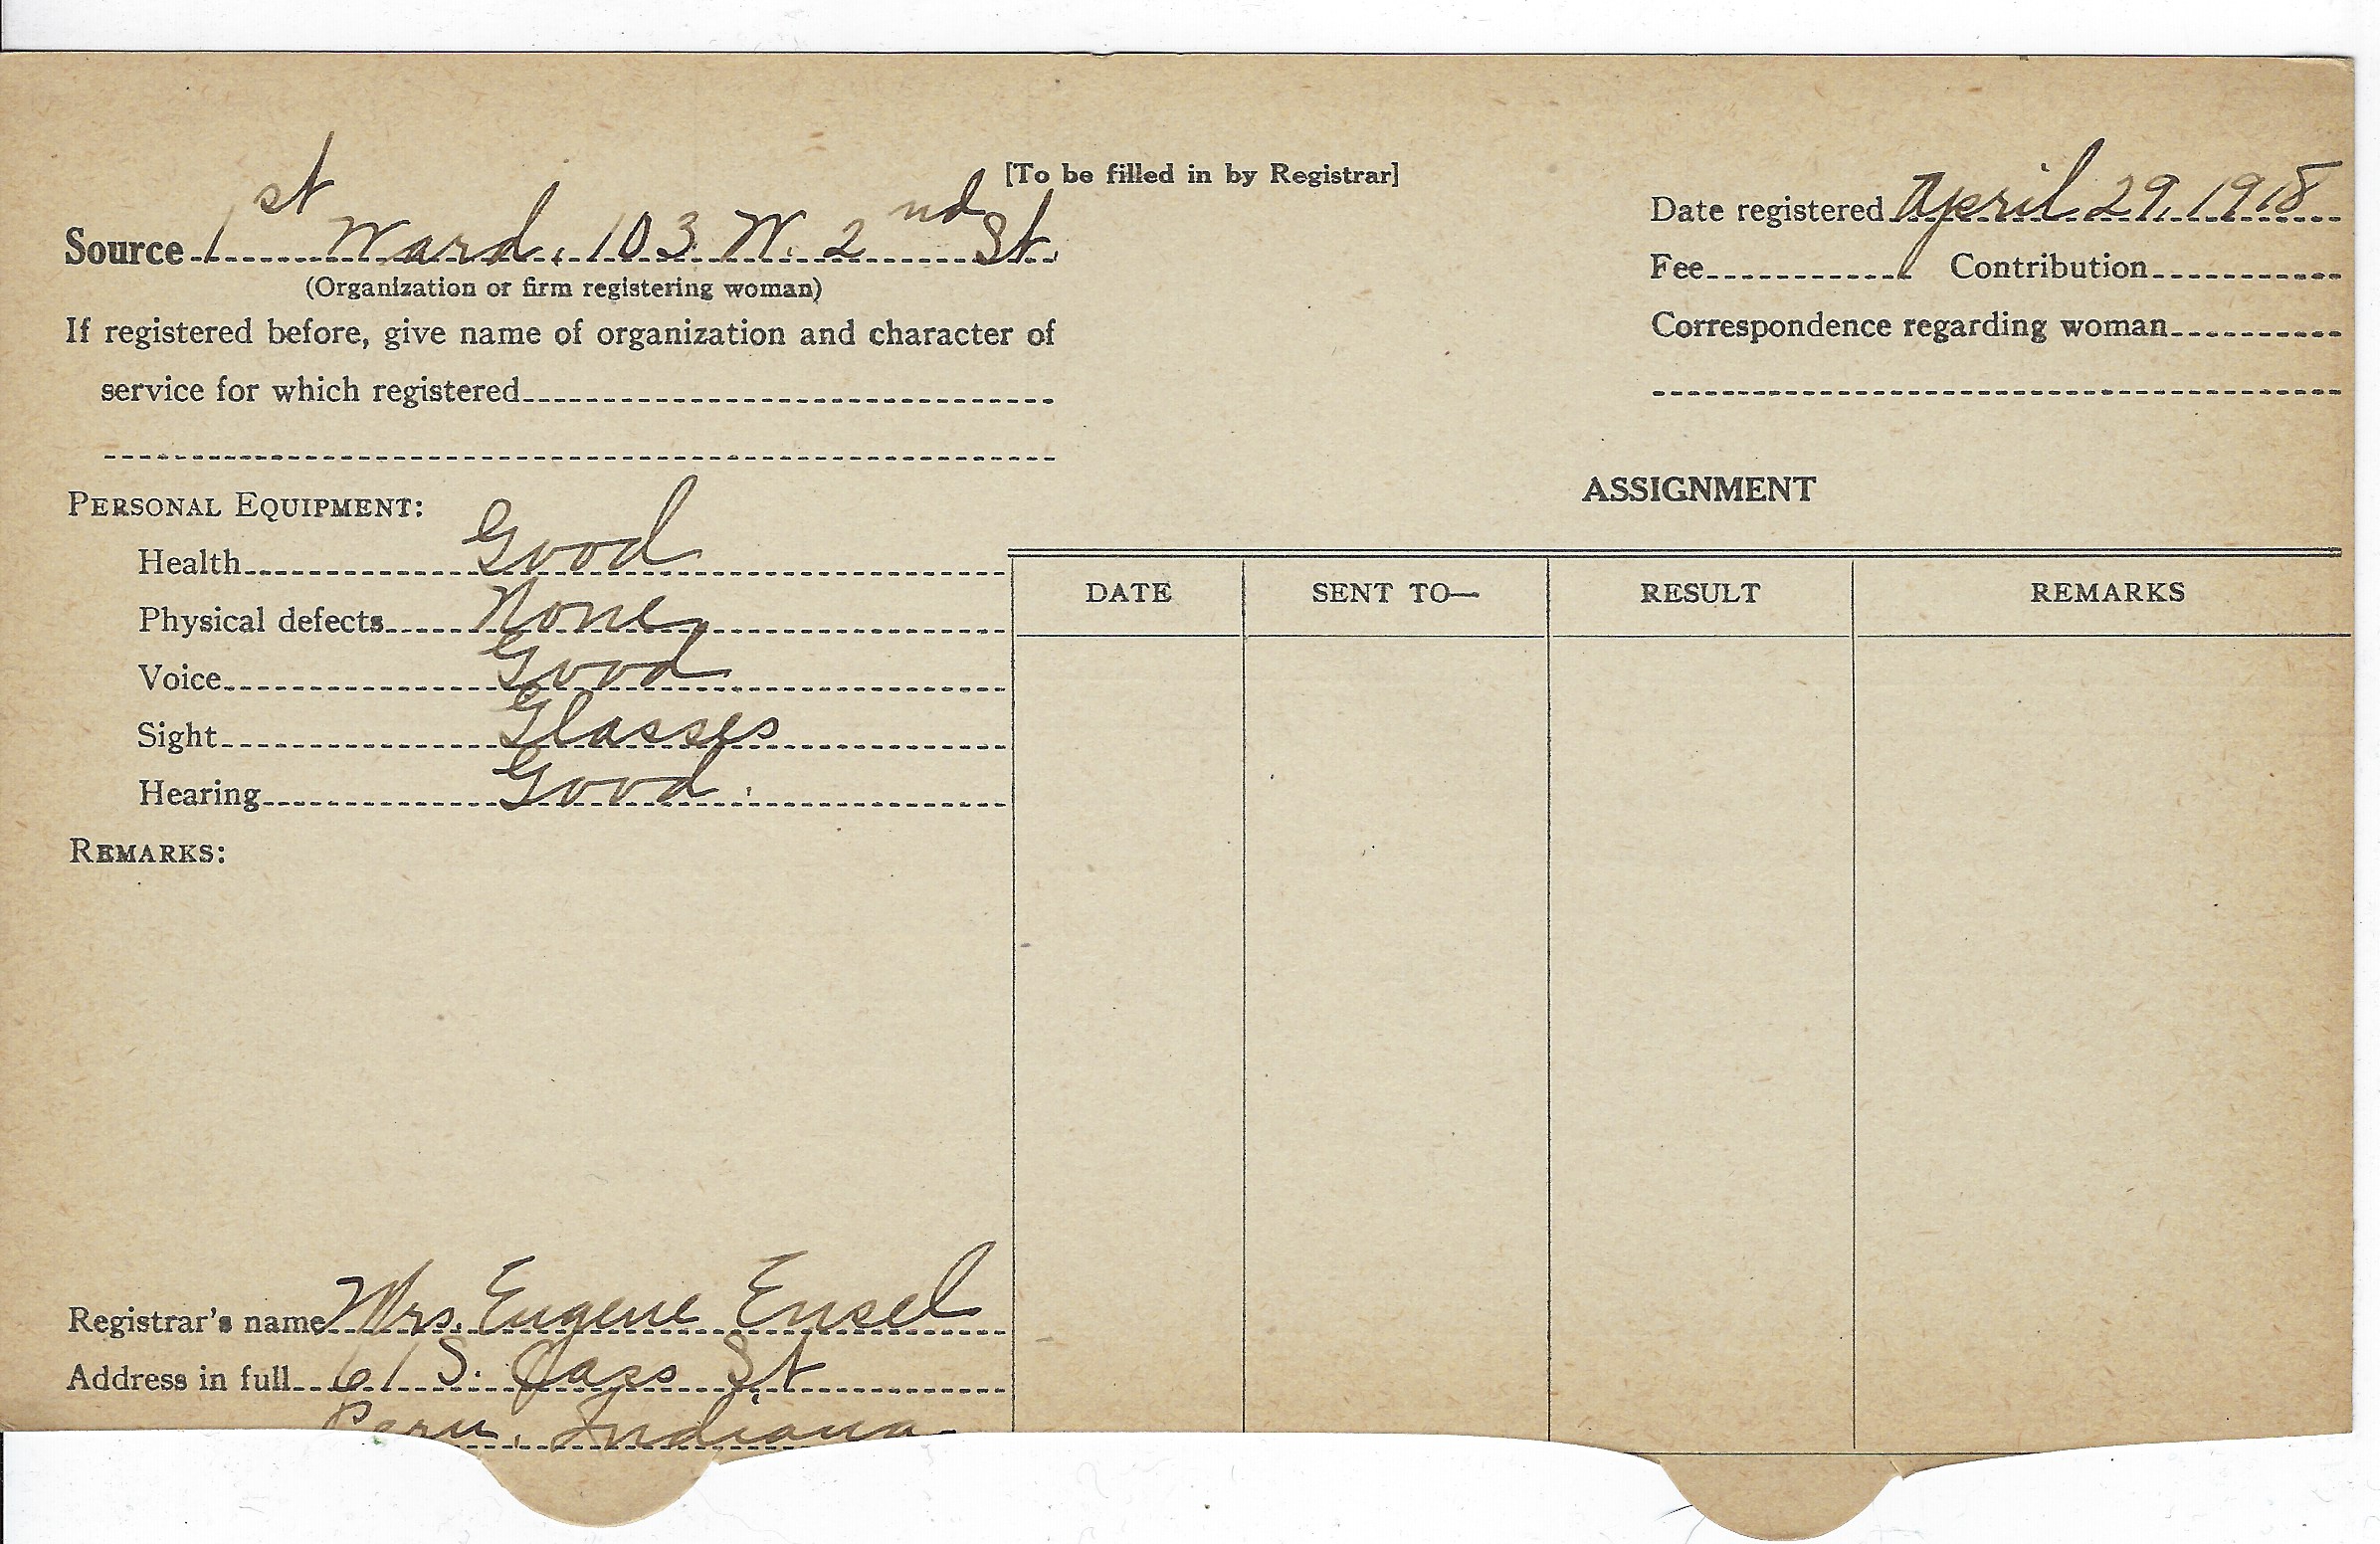 [To be filled in by Registrar]
Source 1st Ward, 103 W. 2nd St.
(Organization or firm registering woman)
If registered before, give name of organization and character of
service for which registered
Date registered April 29, 1918
Fee Contribution
Correspondence regarding woman
PERSONAL EQUIPMENT:
Health Good
Physical defects None
Voice Good
Sight Glasses
Hearing Good
REMARKS:
ASSIGNMENT
DATE SENT TO— RESULT REMARKS
Registrar's name Mrs. Eugene Ensel
Address in full 61 S. Cass St
Peru, Indiana